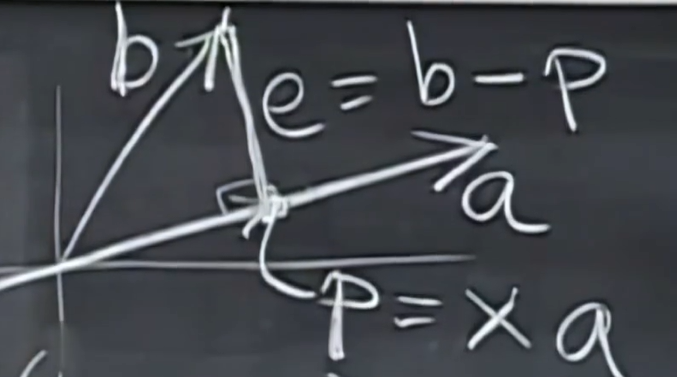 b
e = b - p
a
p = x a